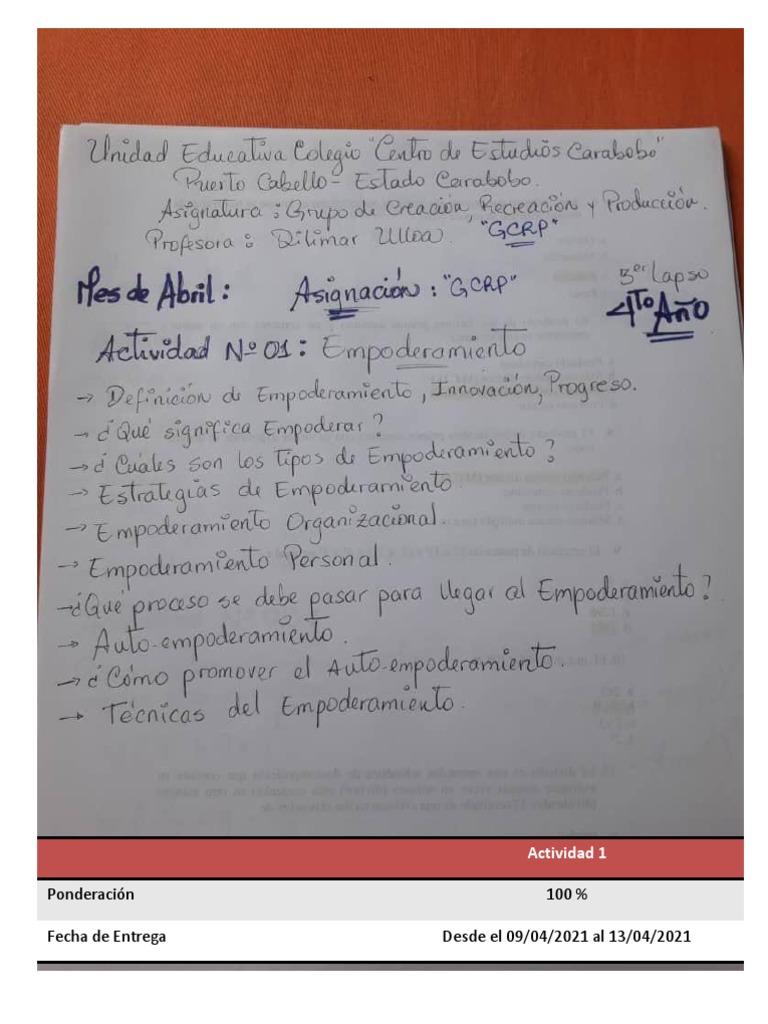 Unidad Educativa Colegio "Centro de Estudios Carabobo"
Puerto Cabello - Estado Carabobo.
Asignatura : Grupo de Creación, Recreación y Producción.
Profesora : Dilimar Ulloa. "GCRP"
Mes de Abril : Asignación : "GCRP"
3er Lapso
4To Año
Actividad Nº 01 : Empoderamiento
→ Definición de Empoderamiento, Innovación, Progreso.
→ ¿Qué significa Empoderar?
→ ¿Cuáles son los Tipos de Empoderamiento?
→ Estrategias de Empoderamiento.
→ Empoderamiento Organizacional.
→ Empoderamiento Personal.
→ ¿Qué proceso se debe pasar para llegar al Empoderamiento?
→ Auto-empoderamiento.
→ ¿Cómo promover el Auto-empoderamiento.
→ Técnicas del Empoderamiento.
Actividad 1
Ponderación 100 %
Fecha de Entrega Desde el 09/04/2021 al 13/04/2021